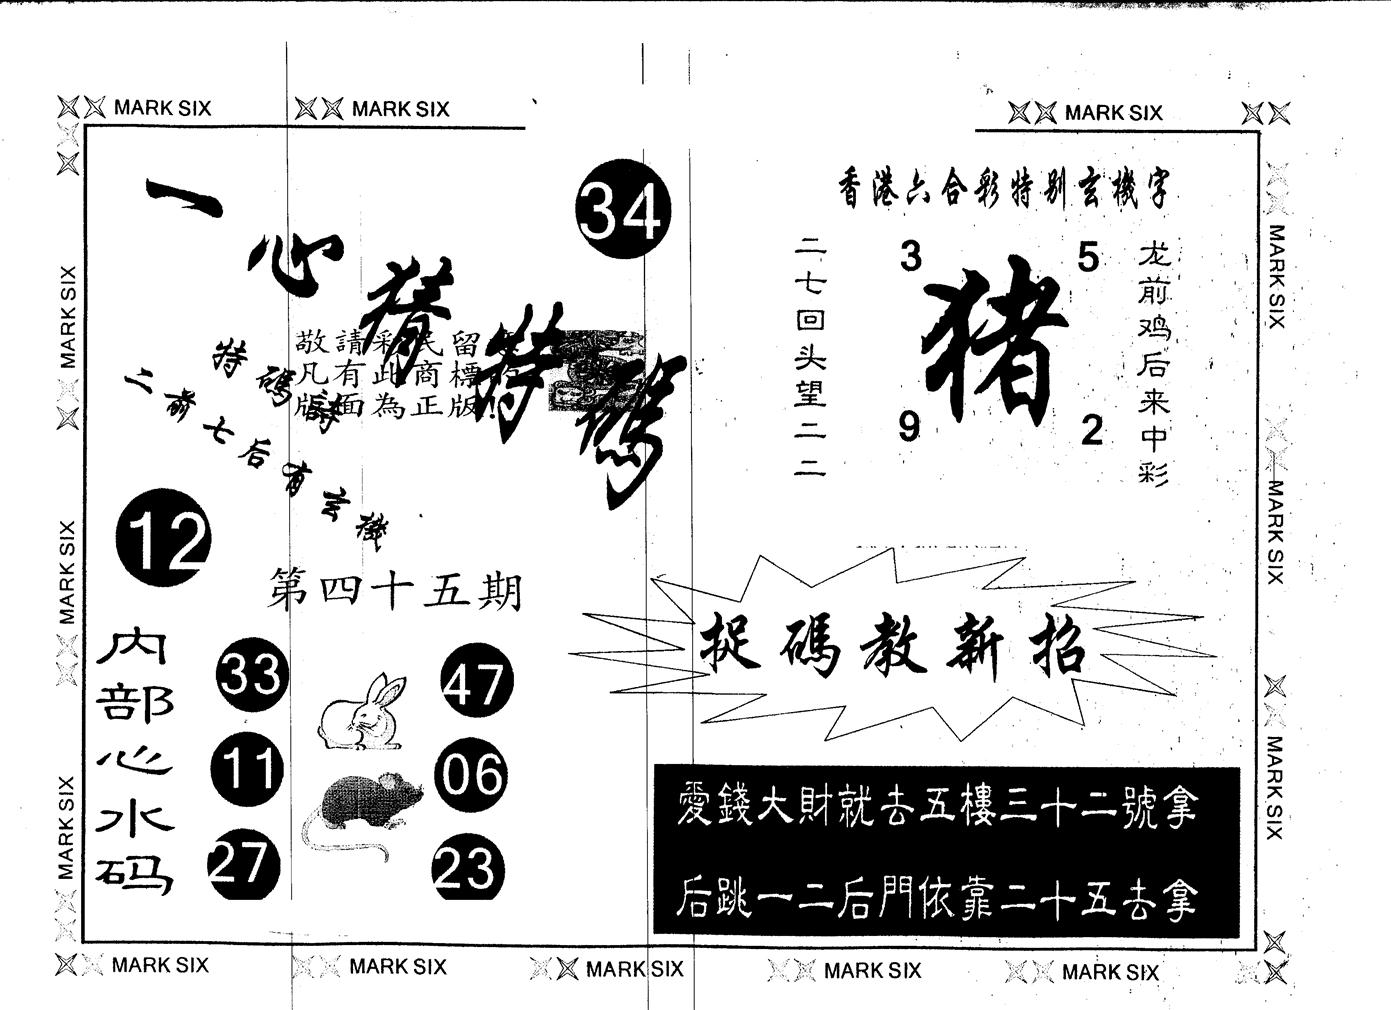 MARK SIX
MARK SIX
MARK SIX
一心猜特碼
34
敬請彩民留
凡有此商標
版面為正版!
特碼詩
二前七后有玄機
12
第四十五期
内部心水码
33
47
11
06
27
23
香港六合彩特别玄機字
二七回头望二二
3
5
猪
9
2
龙前鸡后来中彩
捉碼教新招
愛錢大財就去五樓三十二號拿
后跳一二后門依靠二十五去拿
MARK SIX
MARK SIX
MARK SIX
MARK SIX
MARK SIX
MARK SIX
MARK SIX
MARK SIX
MARK SIX
MARK SIX
MARK SIX